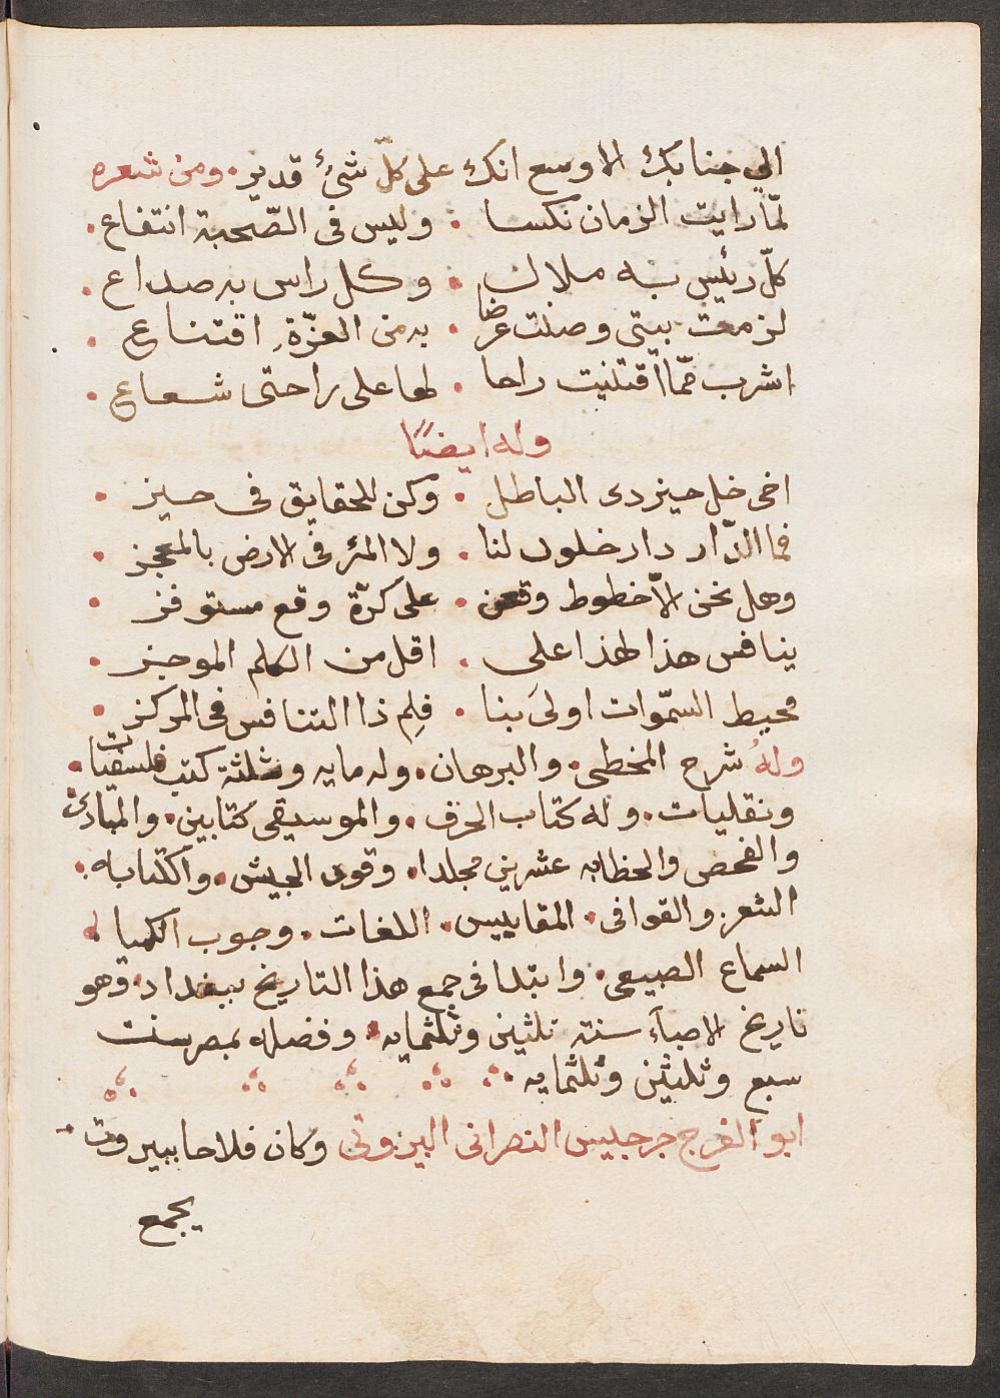 الي جنابك الاوسع انك على كلّ شئ قدير. ومن شعره
لمّا رايت الزمان نكسا . وليس فى الصّحبة انتفاع.
كلّ رئيس به ملال . وكل راس به صداع .
لزمت بيتى وصنت عرضا . به من العزّة اقتناع .
اشرب ممّا اقتنيت راحا . لها على راحتى شعاع .
وله ايضًا
اخى خل حيز دى الباطل . وكن للحقايق فى حيز .
فما الدّار دار خلود لنا . ولا المرؤ فى الارض بالمعجز .
وهل نحن الاّ خطوط وقعن . على كرّة وقع مستوفز .
ينافس هذا لهذا على . اقل من الكلم الموجز .
محيط السمّوات اولىَ بنا . فلِم ذا التنافس فى المركز .
وله شرح المخطى. والبرهان. وله مايه وثلثة كتب فلسفيات.
ونقليات. وله كتاب الحرف. والموسيقى كتابين. والمبادئ
والفحص والخطابه عشرين مجلدا. وقود الجيش. والكتابه.
الشعر والقوافى. المقاييس. اللغات. وجوب الكميا .
السماع الطبيعى. وابتدا فى جمع هذا التاريخ ببغداد. وهو
تاريخ الاطباء سنة ثلثين وثلثمايه. وفضله بمصر سنت
سبع وثلثين وثلثمايه .
ابو الفرج جرجيس النصرانى البيروتى وكان فلاحا ببيروت
يجمع